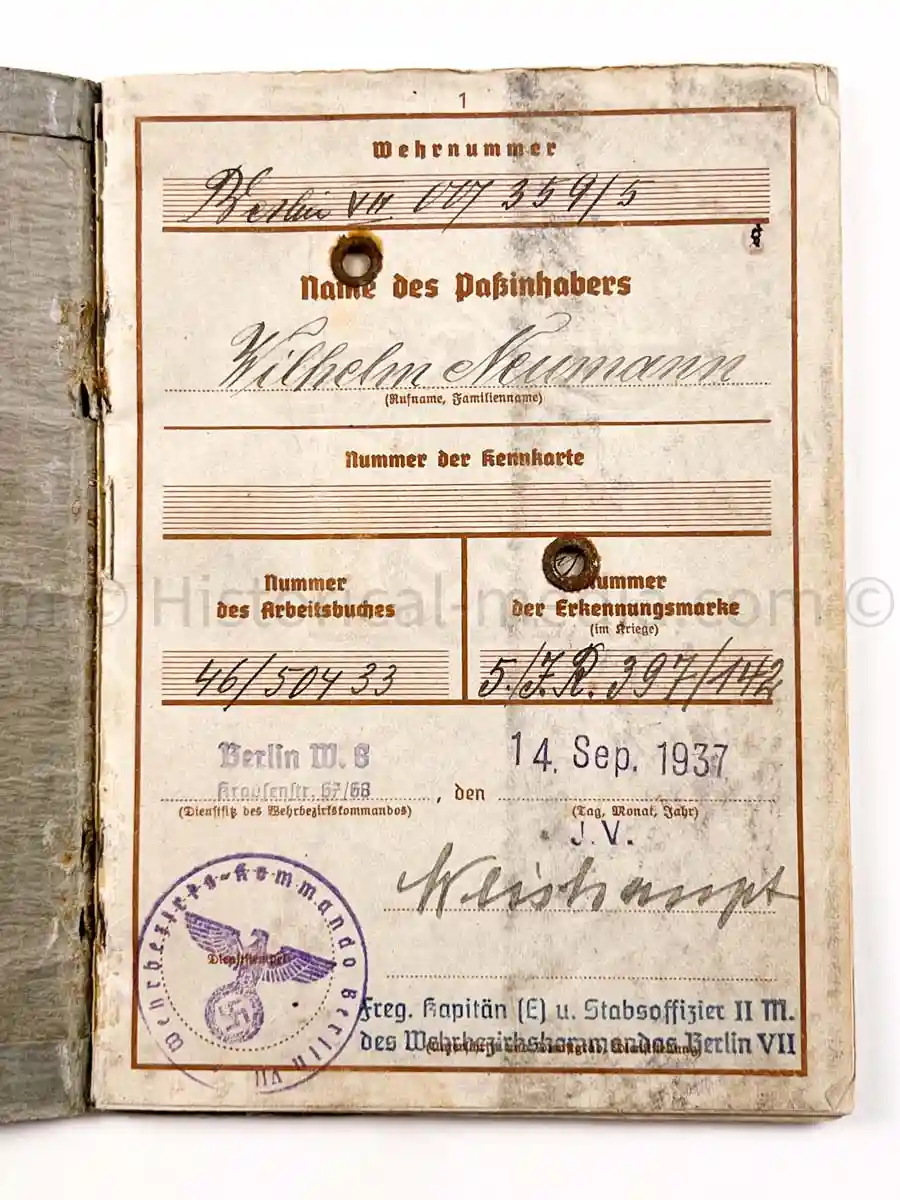 1
Wehrnummer
Berlin VII 007 359/5
Name des Paßinhabers
Wilhelm Neumann
(Rufname, Familienname)
Nummer der Kennkarte
Nummer des Arbeitsbuches
46/504 33
Nummer der Erkennungsmarke
(im Kriege)
5./J.R. 397/142
m © Historical-media.com ©
Berlin W. 8
Krausenstr. 67/68
, den
14. Sep. 1937
(Dienstsitz des Wehrbezirkskommandos)
(Tag, Monat, Jahr)
J.V.
Weishaupt
Wehrbezirks-Kommando Berlin VII
Dienststempel
Freg. Kapitän (E) u. Stabsoffizier II M.
des Wehrbezirkskommandos Berlin VII